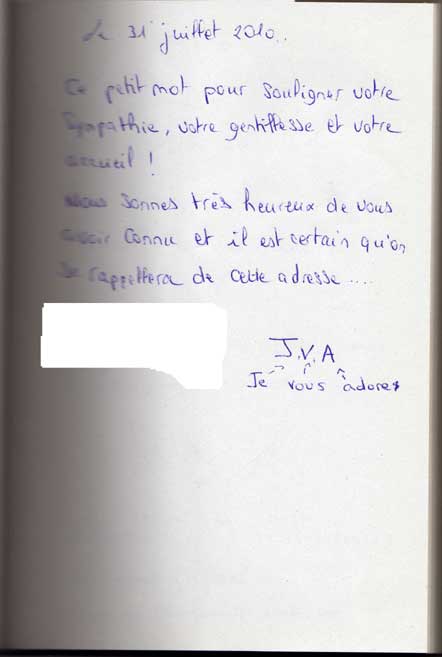 Le 31 juillet 2010..
Ce petit mot pour souligner votre
sympathie, votre gentillesse et votre
accueil !
Nous sonnes très heureux de vous
avoir connu et il est certain qu'on
se rappellera de cette adresse....
J.V.A
Je vous adores